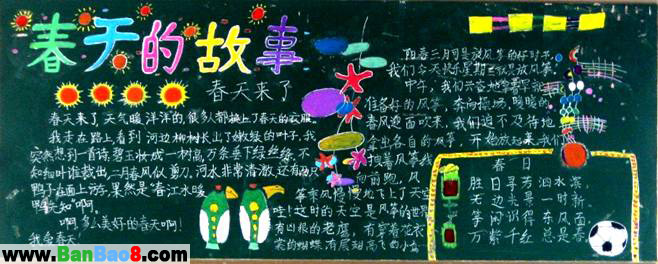 春天的故事
春天来了
春天来了,天气暖洋洋的,很多都换上了春天的衣服。
我走在路上,看到河边柳树长出了嫩绿的叶子,我
突然想到一首诗,碧玉妆成一树高,万条垂下绿丝绦,不
知细叶谁裁出,二月春风似剪刀,河水非常清澈,还有
鸭子在面上游,果然是春江水暖
鸭先知啊
啊,多么美好的春天啊!
我爱春天
阳春三月可是放风筝的好时节,
我们今天快乐星期三就是放风筝。
中午,我们兴高
准备好的风筝,奔向操场,暖暖的
春风迎面吹来,我们迫不及待地
拿出各自的风筝,开始放起来
拽着风筝
向前跑,风
筝乘风慢慢地飞上了天空
哇!这时的天空是风筝的世界
有凶狠的老鹰,有穿着花衣
裳的蝴蝶,有展翅高飞的小鸟
春日
胜日寻芳泗水滨
无边光景一时新
等闲识得东风面
万紫千红总是春
www.BanBao8.com